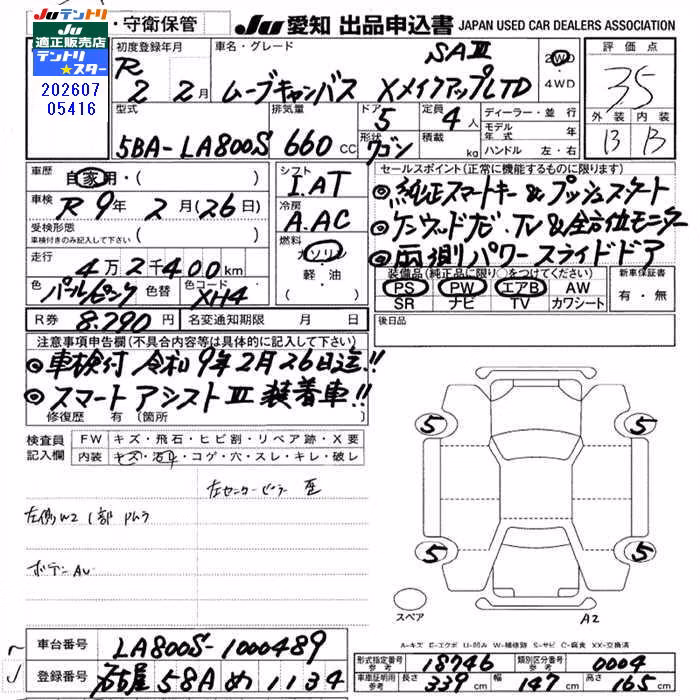 JUテントリ
JU
適正販売店
テントリ
★スター
202607
05416
・守衛保管
JU 愛知 出品申込書 JAPAN USED CAR DEALERS ASSOCIATION
初度登録年月 車名・グレード 評価点
R 2 2月 ムーブキャンバス XメイクアップLTD SAⅢ 2WD・4WD 3.5
型式 排気量 ドア 定員 ディーラー・並行 外装 内装
5BA-LA800S 660 CC 5 4人 B B
形状 積載 モデル年式 年
ワゴン kg ハンドル 左・右
車歴 自家用・( ) シフト I.AT
車検 R9年2月(26日) 冷房 A.AC
受検形態 ( )
車検付きのみ記入して下さい
燃料 ガソリン・軽・油
走行 4万2千400km
色 パールピンク 色替 色コード XH4
R券 8.290円 名変通知期限 月 日
セールスポイント(正常に機能するものに限ります)
◎純正スマートキー&プッシュスタート
◎ケンウッドナビ.TV&全方位モニター
◎両側パワースライドドア
装備品(純正品に限り○をつけてください) 新車保証書
PS PW エアB AW 有・無
SR ナビ TV カワシート
後日品
注意事項申告欄(不具合内容等は具体的に記入して下さい)
◎車検付 令和9年2月26日迄!!
◎スマートアシストⅢ装着車!!
修復歴 有(箇所
検査員 FW キズ・飛石・ヒビ割・リペア跡・X要
記入欄 内装 キズ・汚れ・コゲ・穴・スレ・キレ・破レ
左センターピラー
左側W2 1部
ボデーAU
5 5
5 5
スペア
A2
A-キズ E-エクボ U-凹み W-補修跡 S-サビ C-腐食 XX-交換済
車台番号 LA800S-1000489
登録番号 名古屋 58A め 1134
形式指定番号 参考 18746 類別区分番号 参考 0004
車庫証明用 参考 長さ 339cm 幅 147cm 高さ 165cm